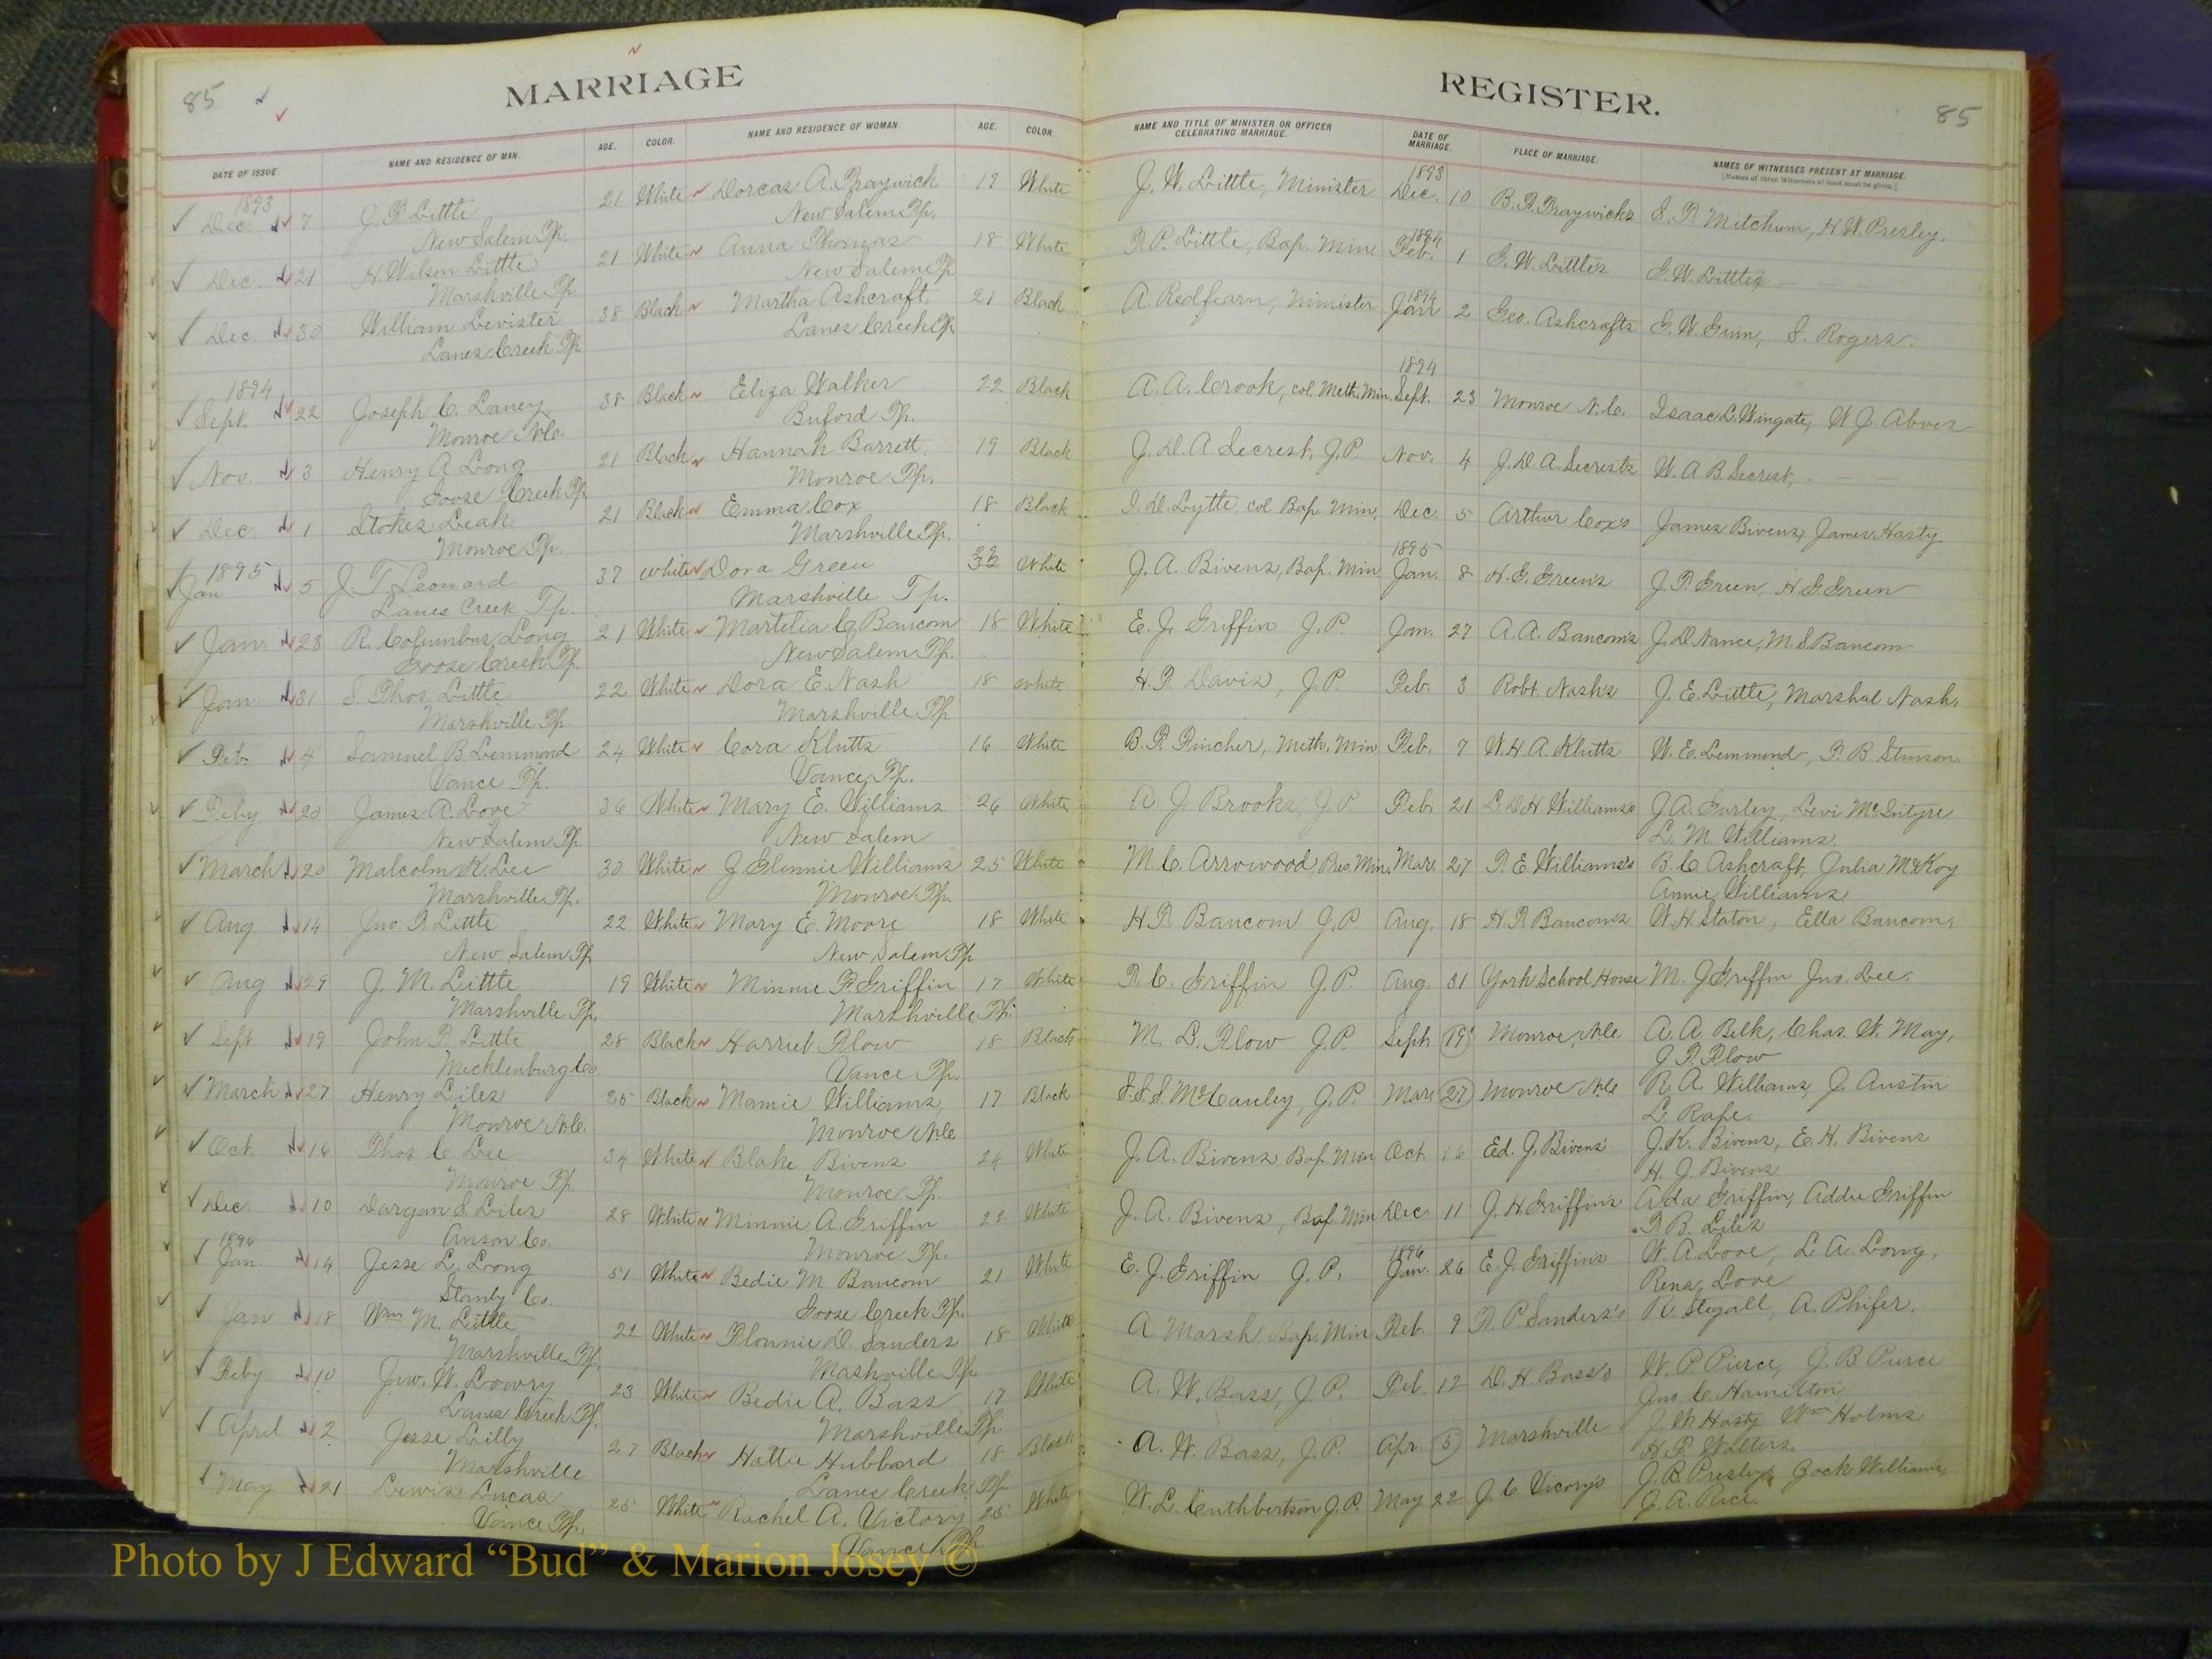 85
MARRIAGE
REGISTER.
85
DATE OF ISSUE. NAME AND RESIDENCE OF MAN. AGE. COLOR. NAME AND RESIDENCE OF WOMAN. AGE. COLOR. NAME AND TITLE OF MINISTER OR OFFICER CELEBRATING MARRIAGE. DATE OF MARRIAGE. PLACE OF MARRIAGE. NAMES OF WITNESSES PRESENT AT MARRIAGE.
[Names of three Witnesses at least must be given.]
1893 1893
Dec. 7 J. P. Little 21 White Dorcas A. Traywick 19 White J. W. Little, Minister Dec. 10 B. F. Traywicks S. P. Mitchum, H. W. Presley.
New Salem Tp. New Salem Tp.
1894
Dec. 21 H. Wilson Little 21 White Anna Thomas 18 White P. P. Little, Bap. Min. Feb. 1 G. W. Little's G. W. Little
Marshville Tp. New Salem Tp
1894
Dec. 30 William Levister 38 Black Martha Ashcraft. 21 Black A. Redfearn, Minister Jan 2 Geo. Ashcrafts G. W. Gum, S. Rogers.
Lanes Creek Tp. Lanes Creek Tp
1894 1894
Sept. 22 Joseph C. Laney 38 Black Eliza Walker 22 Black A. A. Crook, col. Meth. Min. Sept. 23 Monroe N.C. Isaac L. Wingate, W. J.
Monroe N.C. Buford Tp.
Nov. 3 Henry A. Long 21 Black Hannah Barrett 19 Black J. D. A. Secrest, J.P. Nov. 4 J. D. A. Secrests W. A. B. Secrest,
Goose Creek Tp. Monroe Tp.
Dec. 1 Stokes Leak 21 Black Emma Cox 18 Black I. D. Lytte col. Bap. Min. Dec. 5 Arthur Cox's James Bivens, James Hasty
Monroe Tp. Marshville Tp.
1895 22 1895
Jan 5 J. T. Leonard 37 White Dora Green 32 White J. A. Bivens, Bap. Min Jan. 8 H. G. Greens J. P. Green, H. G. Green
Lanes Creek Tp. Marshville Tp.
Jan. 23 R. Columbus Long 21 White Martelia C. Baucom 18 White E. J. Griffin J.P. Jan. 27 A. A. Baucoms J. D. Nance, M. S. Baucom
Goose Creek Tp. New Salem Tp.
Jan 31 S. Thos. Little 22 White Dora E. Nash 18 white H. P. Davis, J.P. Feb. 3 Robt. Nash's J. E. Little, Marshal Nash.
Marshville Tp Marshville Tp
Feb. 4 Samuel B. Lemmond 24 White Cora Klutts 16 White B. F. Fincher, Meth. Min Feb. 7 W. H. A. Klutts W. E. Lemmond, P. B. Stinson.
Vance Tp. Vance Tp.
Feby 20 James A. Love 36 White Mary E. Williams 26 White A. J. Brooks, J.P. Feb. 21 L. D. H. Williams's J. A. Gurley, Levi McIntyre
New Salem Tp New Salem L. M. Williams.
March 20 Malcolm K. Lee 30 White J. Glennie Williams 25 White M. C. Arrowood, Pres. Min. Mar. 27 P. E. Williams's B. C. Ashcraft, Julia McKoy
Marshville Tp. Monroe Tp. Annie Williams
Aug 14 Jno. P. Little 22 White Mary E. Moore 18 White H. P. Baucom J.P. Aug. 18 H. P. Baucoms W. H. Staton, Ella Baucom,
New Salem Tp New Salem Tp
Aug 29 J. M. Little 19 White Minnie F. Griffin 17 White P. C. Griffin J.P. Aug. 31 York School House M. J. Griffin Jno. Lee.
Marshville Tp. Marshville Tp.
Sept. 19 John P. Little 28 Black Harriet Flow 18 Black M. L. Flow J.P. Sept 19 Monroe, N.C. A. A. Belk, Chas. W. May,
Mecklenburg Co. Vance Tp. J. P. Flow
March 27 Henry Liles 25 Black Mamie Williams 17 Black S. S. S. McCauley, J.P. Mar. 27 Monroe N.C. R. A. Williams, J. Austin
Monroe N.C. Monroe N.C. L. Rape.
Oct. 16 Thos. C. Lee 34 White Blake Bivens 24 White J. A. Bivens Bap. Min Oct. 16 Ed. J. Bivens' J. K. Bivens, E. H. Bivens
Monroe Tp. Monroe Tp. H. J. Bivens
Dec. 10 Dargan S. Liles 28 White Minnie A. Griffin 22 White J. A. Bivens, Bap. Min Dec. 11 J. H. Griffins Ada Griffin, Addie Griffin
Anson Co. Monroe Tp. P. B. Liles
1896 1896
Jan 14 Jesse L. Long 51 White Bedie M. Baucom 21 White E. J. Griffin J.P. Jan. 26 E. J. Griffins W. A. Love, L. A. Long,
Stanly Co. Goose Creek Tp. Rena Love
Jan 18 Wm M. Little 22 White Flonnie D. Sanders 18 White A. Marsh Bap. Min Feb. 9 P. P. Sanders's R. Stegall, A. Phifer.
Marshville Tp. Mashville Tp
Feby 10 Jno. W. Lowry 23 White Bedie A. Bass 17 White A. W. Bass, J.P. Feb. 12 D. H. Bass's W. P. Pierce, J. B. Pierce
Lanes Creek Tp. Marshville Tp. Jno. C. Hamilton
April 2 Jesse Lilly 27 Black Hattie Hubbard 18 Black A. W. Bass, J.P. Apr. 5 Marshville J. W. Hasty Wm Holms
Marshville Lanes Creek Tp. H. P. Walters.
May 21 Lewis Lucas 25 White Rachel A. Victory 25 White W. L. Cuthbertson J.P. May 22 J. C. Vicory's J. B. Presley, Zack Williams
Vance Tp. Vance Tp. J. A. Rice.
Photo by J Edward “Bud” & Marion Josey ©